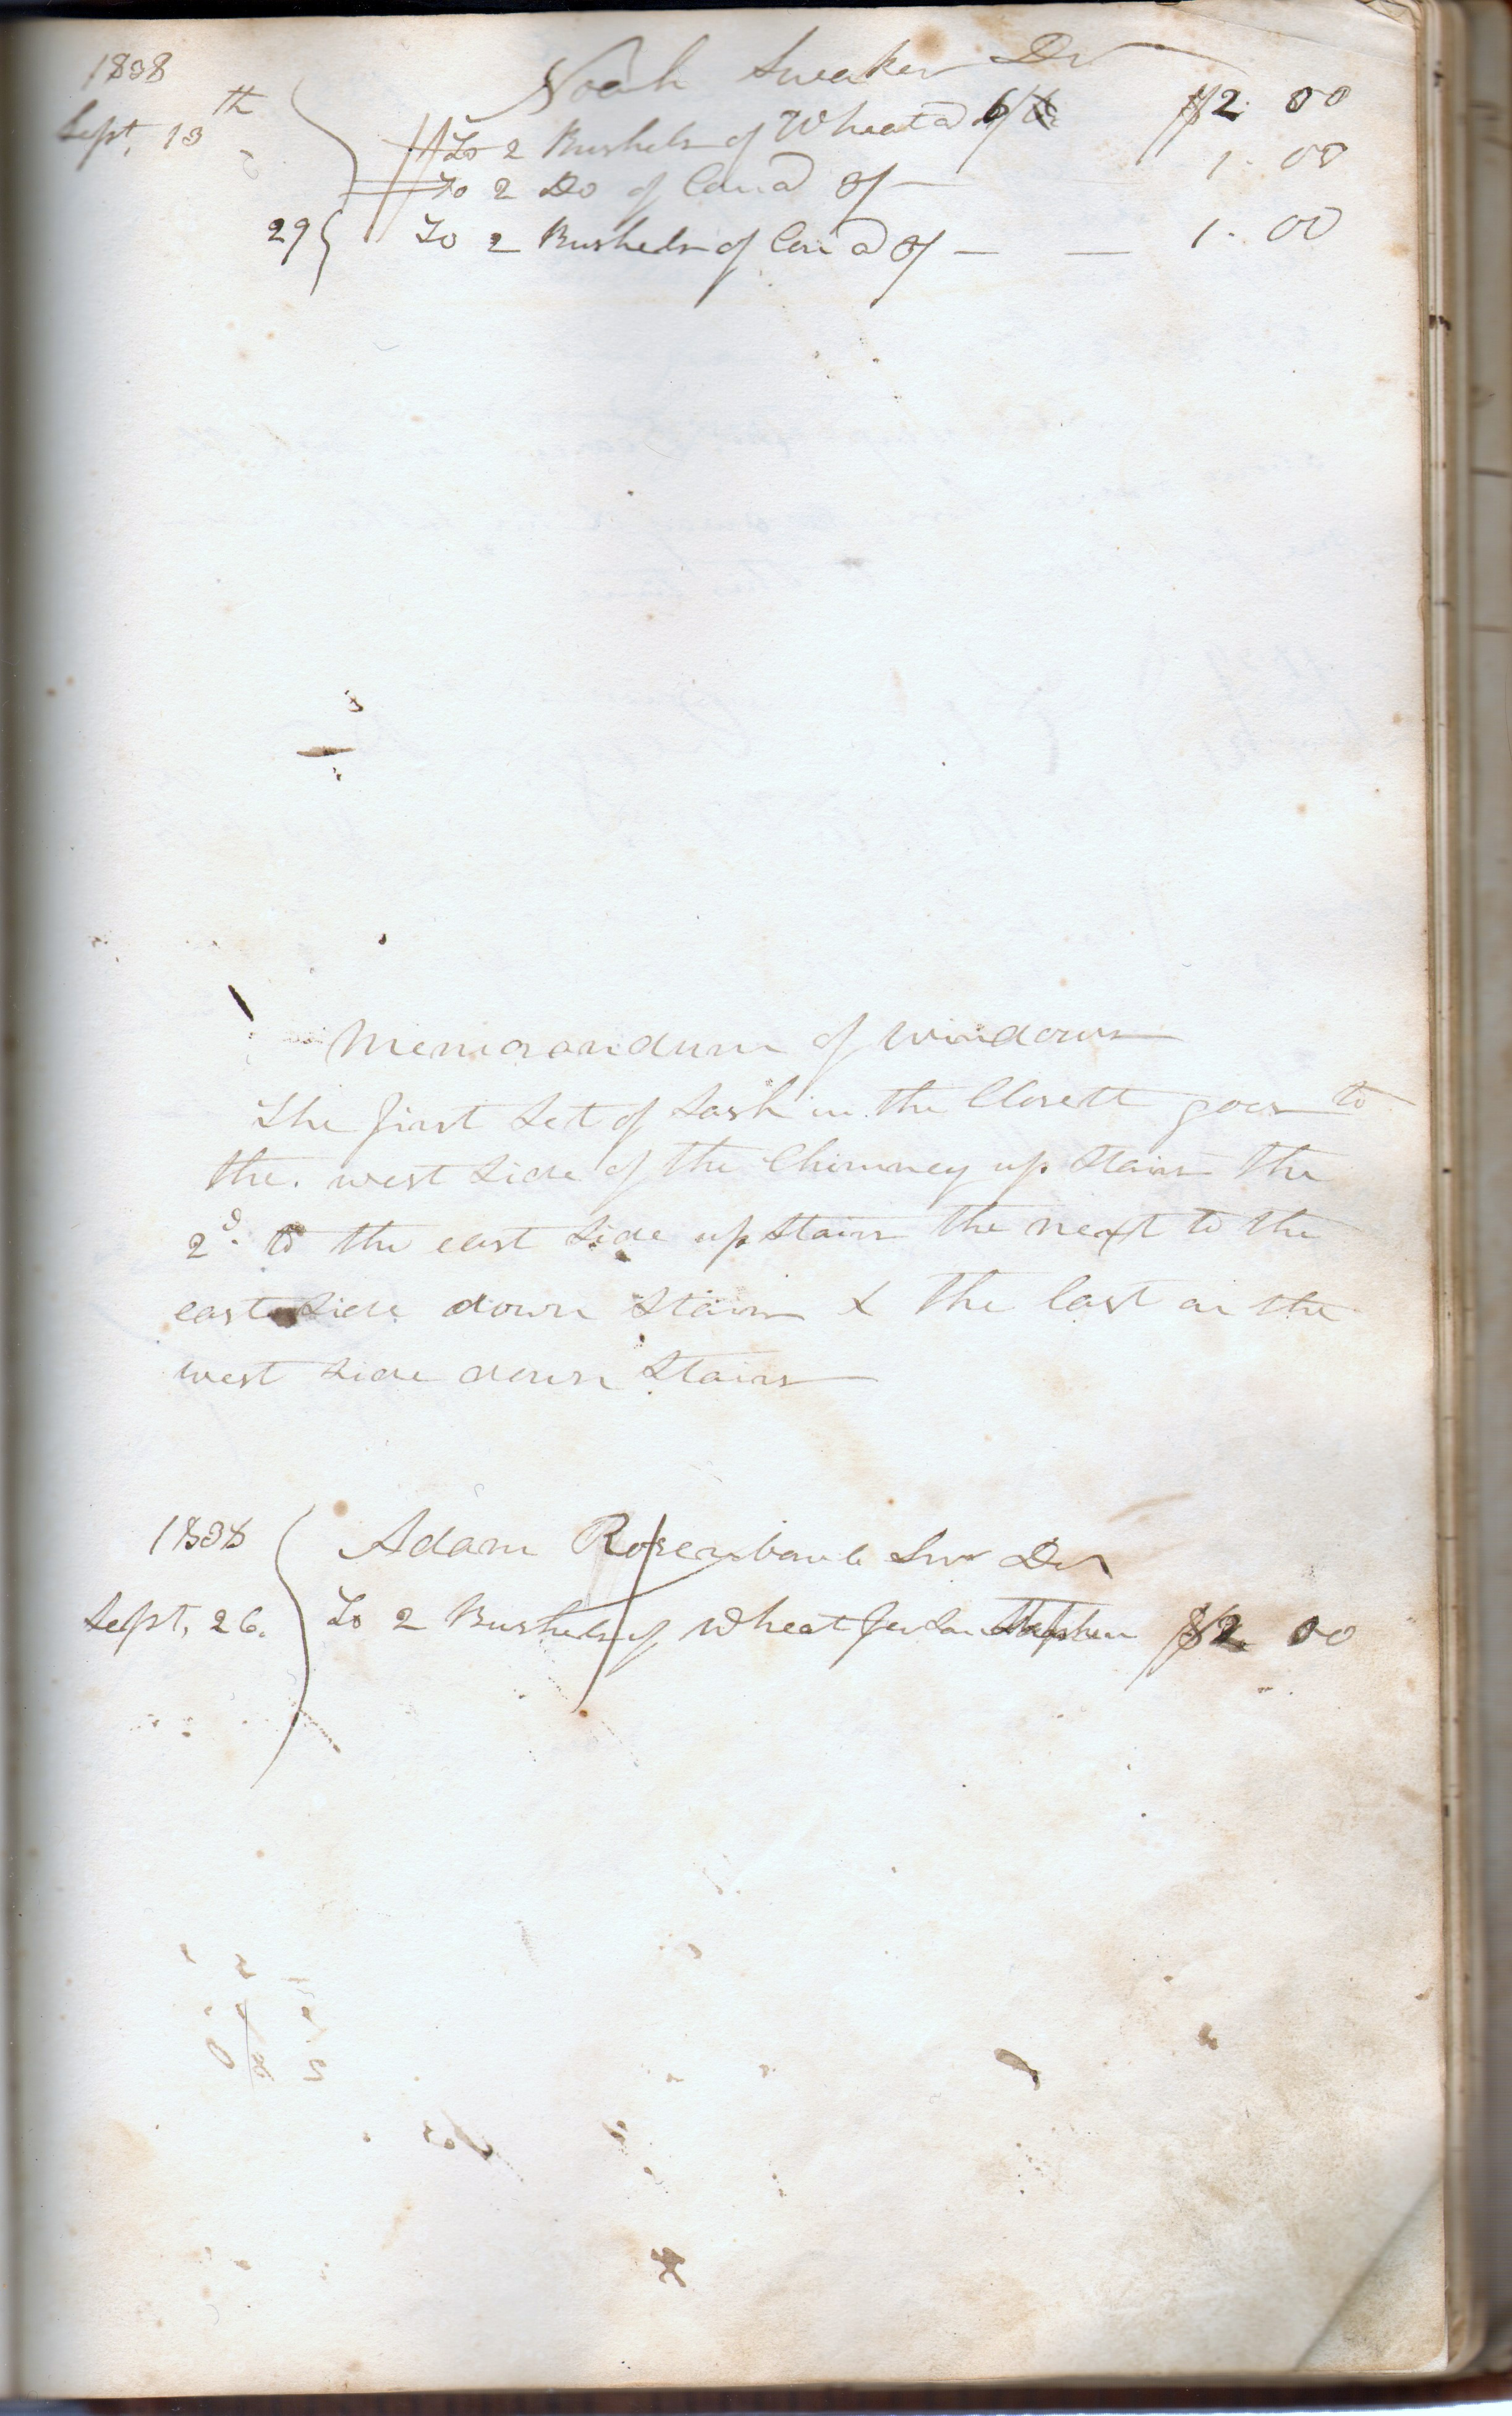 1838
Noah Sweaker Dr
Sept, 13th
To 2 Bushels of Wheat @ 6/ $2 00
To 2 Do of Corn @ 3/ 1. 00
29 To 2 Bushels of Corn @ 3/ 1. 00
Memorandum of windows
The first Set of Sash in the Closett goes to
the. west Side of the Chimney up Stairs The
2d. to the east Side up Stairs the next to the
east Side down Stairs & the last on the
west Side down Stairs
1838 Adam Rosenbaub Snr Dr
Sept, 26. To 2 Bushels of Wheat Stephen $2 00